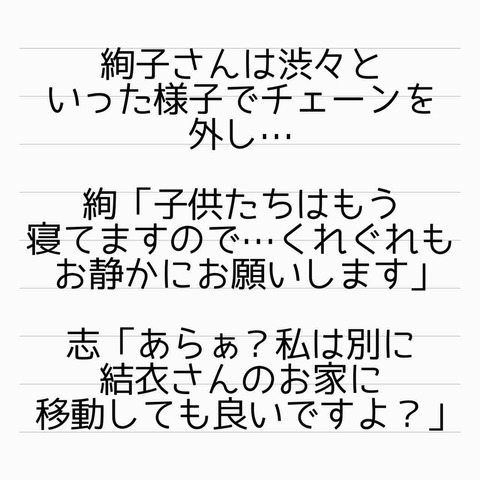 絢子さんは渋々と
いった様子でチェーンを
外し…
絢「子供たちはもう
寝てますので…くれぐれも
お静かにお願いします」
志「あらぁ？私は別に
結衣さんのお家に
移動しても良いですよ？」